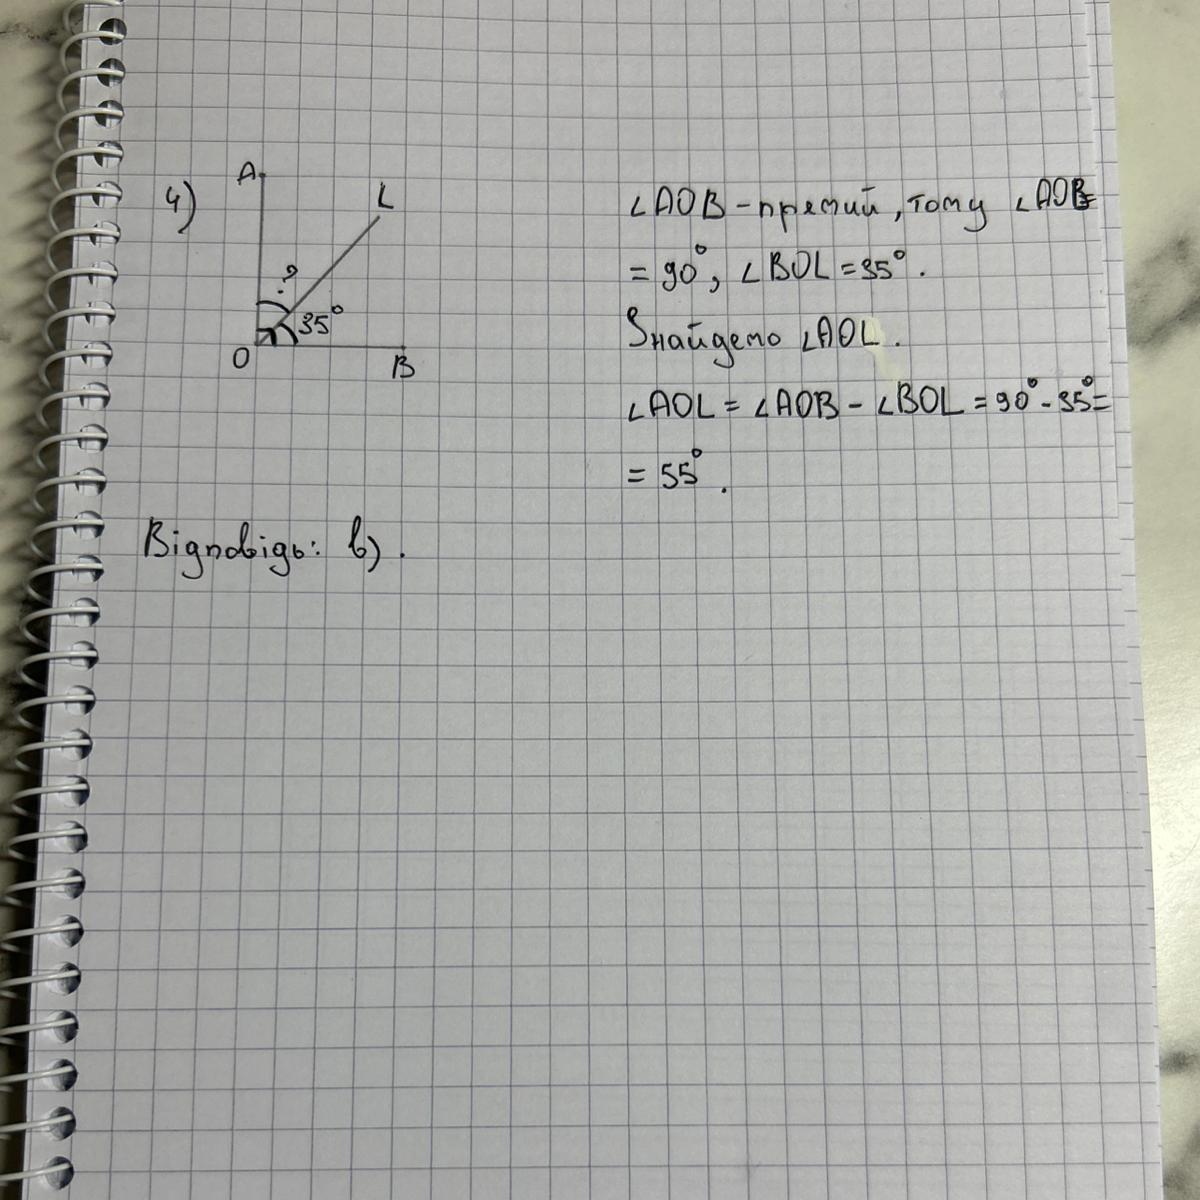 4)
A
L
?
35°
O
B
∠AOB - прямий, тому ∠AOB =
= 90°, ∠BOL = 35°.
Знайдемо ∠AOL.
∠AOL = ∠AOB - ∠BOL = 90° - 35° =
= 55°.
Відповідь: в).